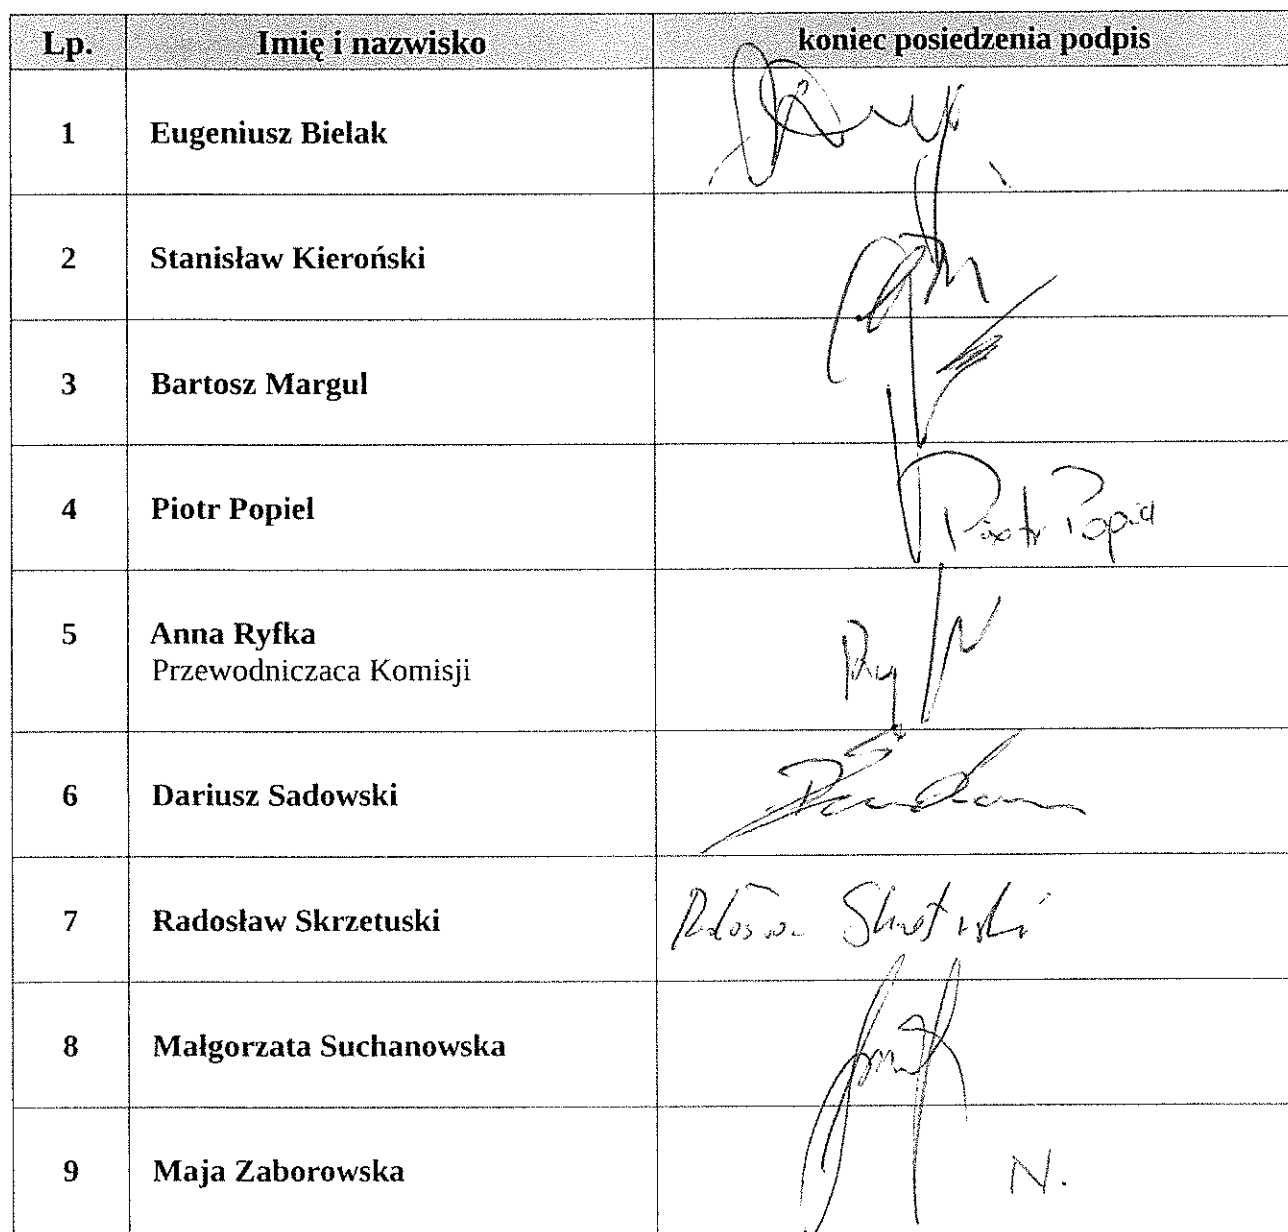 Lp. Imię i nazwisko koniec posiedzenia podpis
1 Eugeniusz Bielak
2 Stanisław Kieroński
3 Bartosz Margul
4 Piotr Popiel Piotr Popiel
5 Anna Ryfka
Przewodnicząca Komisji
6 Dariusz Sadowski
7 Radosław Skrzetuski
8 Małgorzata Suchanowska
9 Maja Zaborowska N.